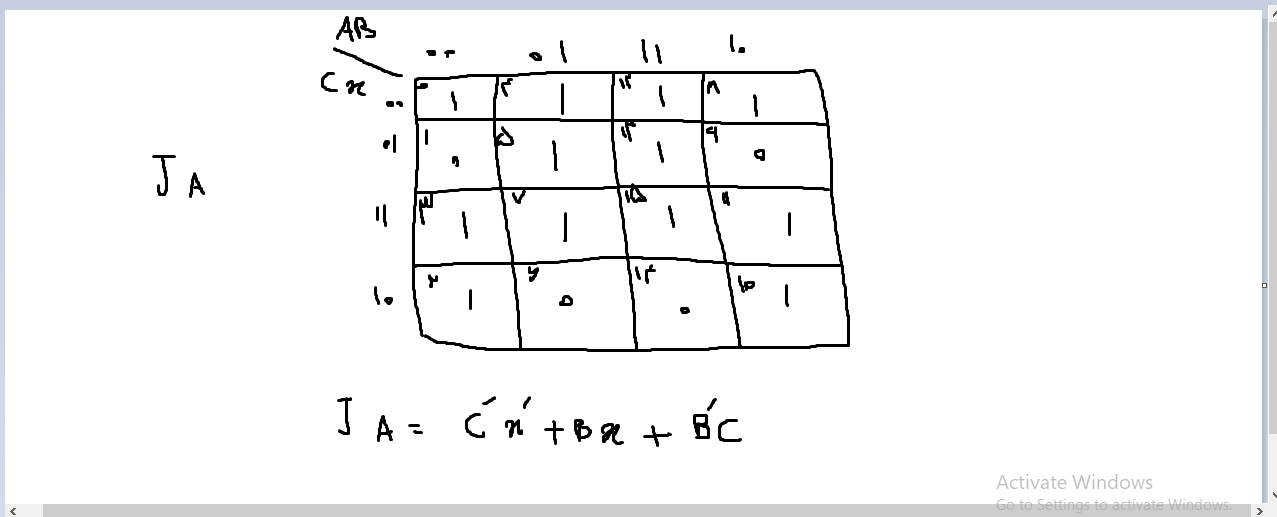 AB
۰۰ ۰۱ ۱۱ ۱۰
Cx
۰۰ ۰ 1 ۴ 1 ۱۲ 1 ۸ 1
۰۱ ۱ ۰ ۵ 1 ۱۳ 1 ۹ ۰
J A
۱۱ ۳ 1 ۷ 1 ۱۵ 1 ۱۱ 1
۱۰ ۲ 1 ۶ ۰ ۱۴ ۰ ۱۰ 1
J A = C′x′ + Bx + B′C
Activate Windows
Go to Settings to activate Windows.